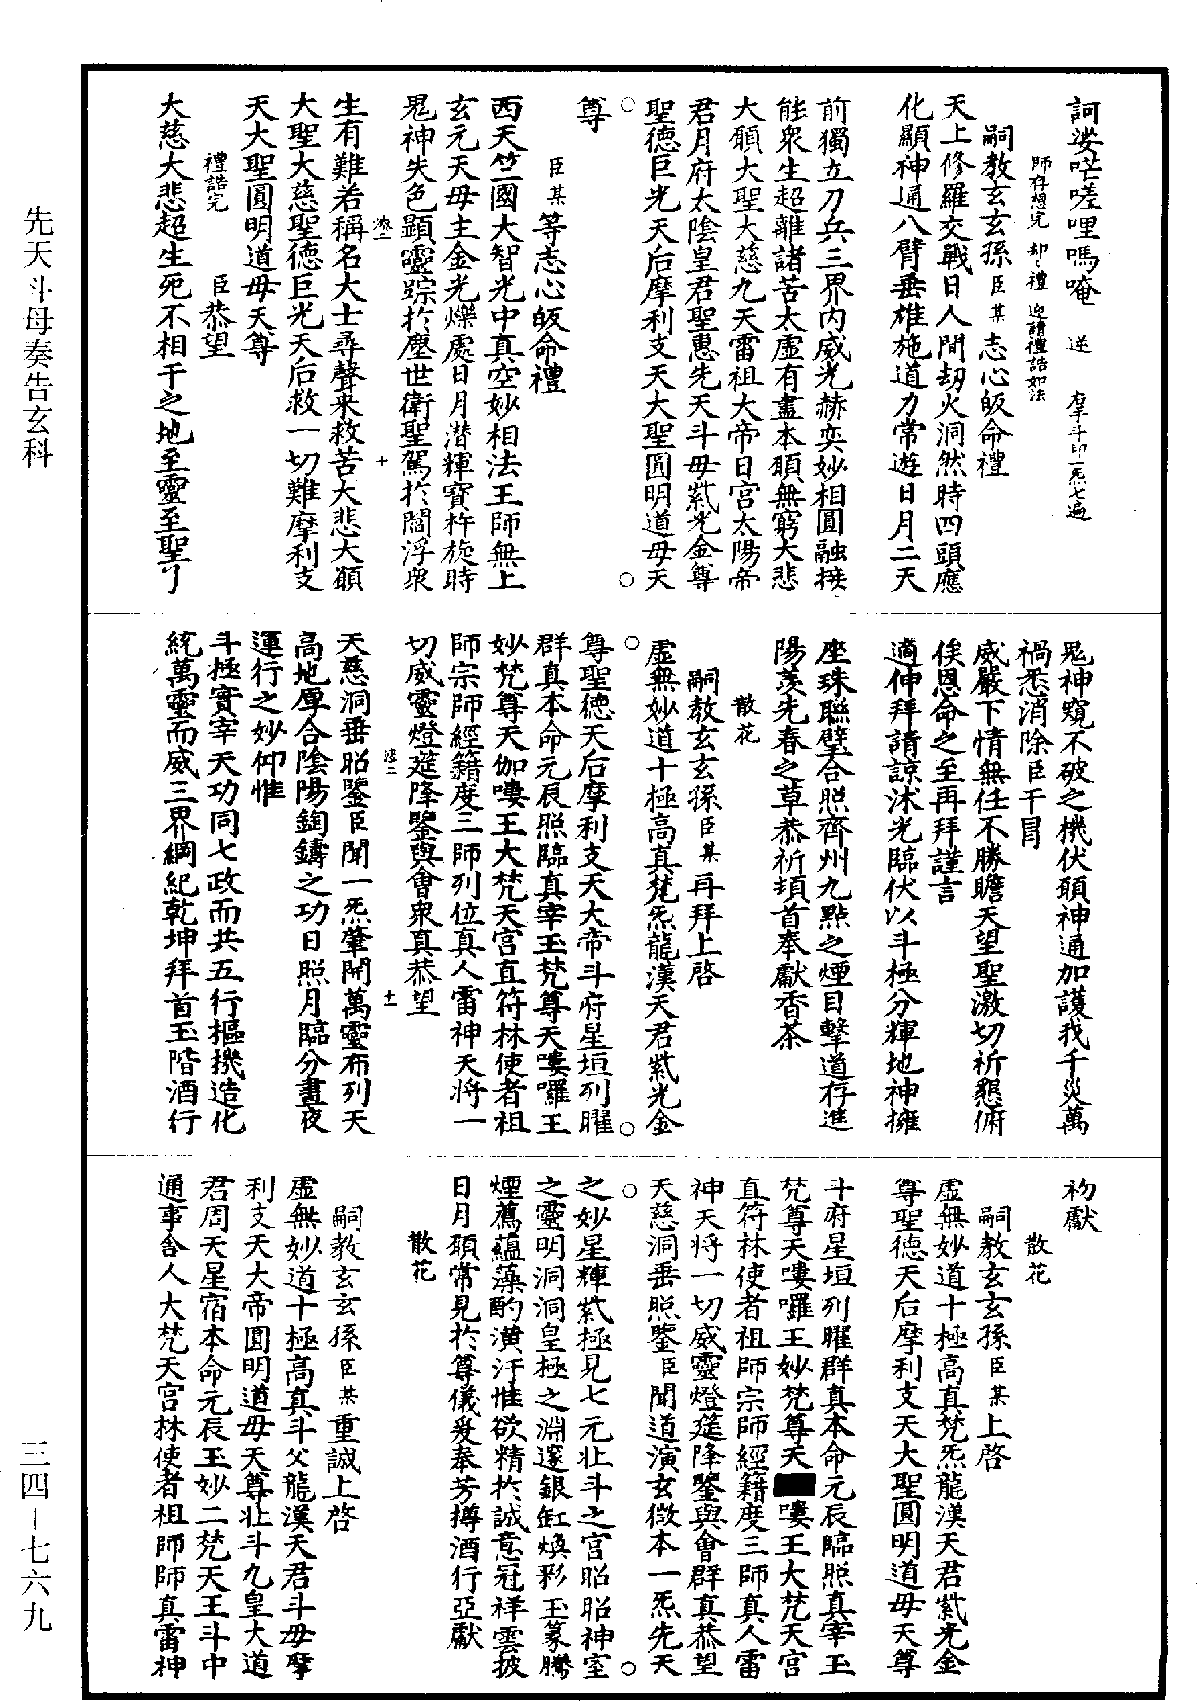 訶娑㲿嗟哩嗎唵　逆　右手斗印一炁七遍
師存想完　却禮　迎請禮誥如法
嗣教玄玄孫臣某志心皈命禮
天上修羅交戰日人間刼火洞然時四頭應
化顯神通八臂垂雄施道力常遊日月二天
前獨立刀兵三界內威光赫奕妙相圓融接
能衆生超離諸苦太虛有盡本願無窮大悲
大願大聖大慈九天雷祖大帝日宮太陽帝
君月府太陰皇君聖惠先天斗母紫光金尊
聖德巨光天后摩利支天大聖圓明道母天
尊
臣某等志心皈命禮
西天竺國大智光中真空妙相法王師無上
玄元天母主金光爍處日月潛輝寶杵旋時
鬼神失色顯靈踪於塵世衛聖駕於閻浮衆
生有難若稱名大士尋聲來救苦大悲大願
大聖大慈聖德巨光天后救一切難摩利支
天大聖圓明道母天尊
禮誥完　臣恭望
大慈大悲超生死不相干之地至靈至聖了
鬼神窺不破之機伏願神通加護我千災萬
禍悉消除臣干冒
威嚴下情無任不勝瞻天望聖激切祈懇俯
俟恩命之至再拜謹言
適伸拜請諒沐光臨伏以斗極分輝地神擁
座珠聯璧合照齊州九點之煙目擊道存進
陽羨先春之草恭祈頊首奉獻香茶
散花
嗣教玄玄孫臣某再拜上啓
虛無妙道十極高真梵炁龍漢天君紫光金
尊聖德天后摩利支天大帝斗府星垣列曜
群真本命元辰照臨真宰玉梵尊天嘍囉王
妙梵尊天伽嘍王大梵天宮直符林使者祖
師宗師經籍度三師列位真人雷神天將一
切威靈燈筵降鑒與會衆真恭望
天慈洞垂昭鑒臣聞一炁肇開萬靈布列天
高地厚合陰陽鉤鑄之功日照月臨分晝夜
運行之妙仰惟
斗極實宰天功同七政而共五行樞機造化
統萬靈而威三界綱紀乾坤拜首玉階酒行
初獻
散花
嗣教玄玄孫臣某上啓
虛無妙道十極高真梵炁龍漢天君紫光金
尊聖德天后摩利支天大聖圓明道母天尊
斗府星垣列曜群真本命元辰臨照真宰玉
梵尊天嘍囉王妙梵尊天嘍王大梵天宮
直符林使者祖師宗師經籍度三師真人雷
神天將一切威靈燈筵降鑒與會群真恭望
天慈洞垂照鑒臣聞道演玄微本一炁先天
之妙星輝紫極見七元北斗之宮昭昭神室
之靈明洞洞皇極之淵邃銀缸煥彩玉篆騰
煙薦蘊藻酌潢汙惟欲精於誠意冠祥雲披
日月願常見於尊儀爰奉芳樽酒行亞獻
散花
嗣教玄玄孫臣某重誠上啓
虛無妙道十極高真斗父龍漢天君斗母摩
利支天大帝圓明道母天尊北斗九皇大道
君周天星宿本命元辰玉妙二梵天王斗中
通事舍人大梵天宮林使者祖師師真雷神
先天斗母奏告玄科
三四－七六九